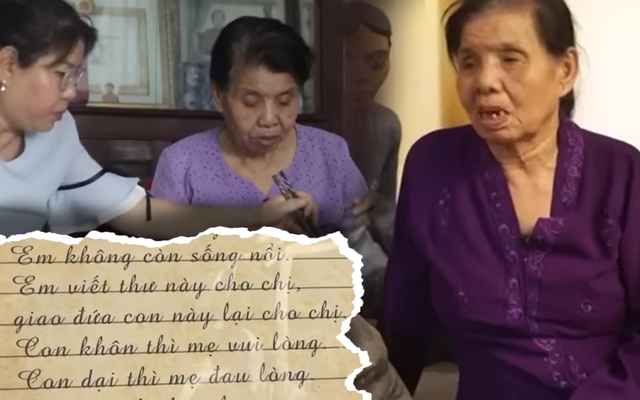 Em không còn sống nổi.
Em viết thư này cho chị,
giao đứa con này lại cho chị.
Con khôn thì mẹ vui lòng.
Con dại thì mẹ đau lòng.